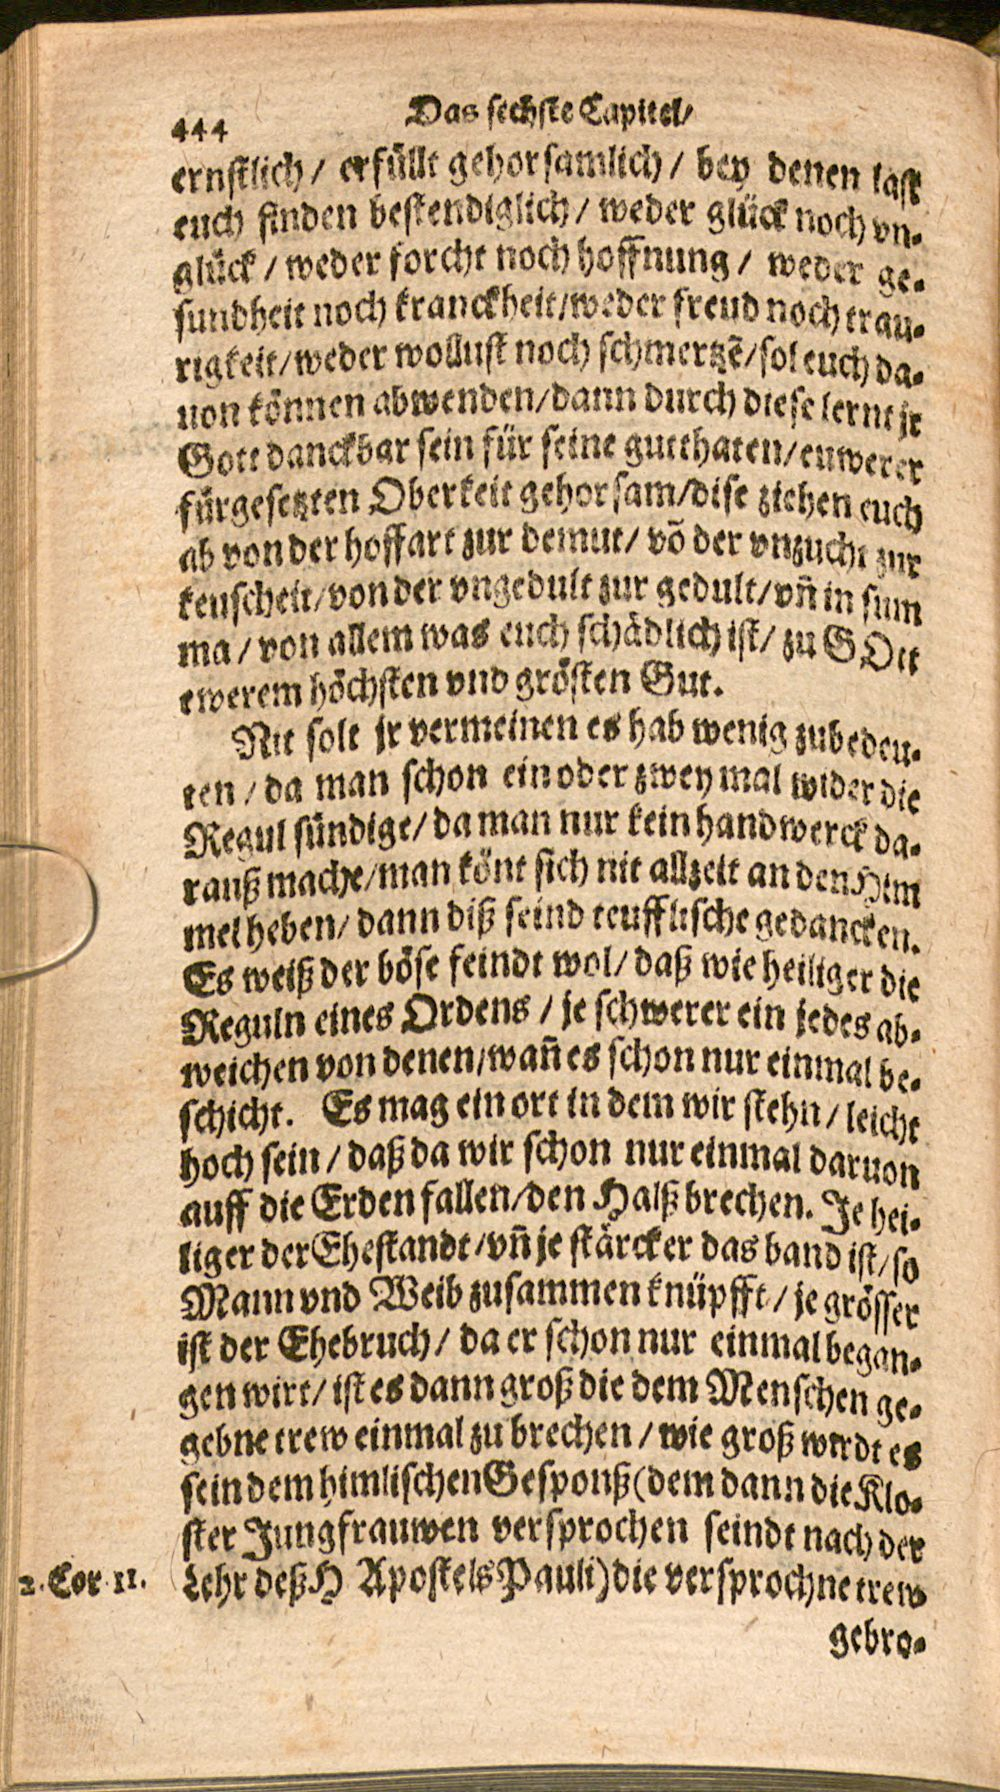 444
Das sechste Capitel/
ernstlich / erfüllt gehorsamlich / bey denen last
euch finden bestendiglich / weder glück noch vn-
glück / weder forcht noch hoffnung / weder ge-
sundheit noch kranckheit/weder freud noch trau-
rigkeit/weder wollust noch schmertzẽ/sol euch da-
uon können abwenden/dann durch diese lernt jr
Gott danckbar sein für seine gutthaten/euwerer
fürgesetzten Oberkeit gehorsam/dise ziehen euch
ab von der hoffart zur demut/ võ der vnzucht zur
keuscheit/von der vngedult zur gedult/vn̄ in sum
ma / von allem was euch schädlich ist/ zu GOtt
ewerem höchsten vnd grösten Gut.
Nit solt jr vermeinen es hab wenig zubedeu-
ten / da man schon ein oder zwey mal wider die
Regul sündige/ da man nur kein handwerck da-
rauß mache/man könt sich nit allzeit an den Him
mel heben/ dann diß seind teufflische gedancken.
Es weiß der böse feindt wol/ daß wie heiliger die
Reguln eines Ordens / je schwerer ein jedes ab-
weichen von denen/wan̄ es schon nur einmal be-
schicht. Es mag ein ort in dem wir stehn / leicht
hoch sein / daß da wir schon nur einmal daruon
auff die Erden fallen/den Halß brechen. Je hei-
liger der Ehestandt/vn̄ je stärcker das band ist/so
Mann vnd Weib zusammen knüpfft / je grösser
ist der Ehebruch/ da er schon nur einmal began-
gen wirt/ ist es dann groß die dem Menschen ge-
gebne trew einmal zu brechen / wie groß wirdt es
sein dem himlischen Gesponß (dem dann die Klo-
ster Jungfrauwen versprochen seindt nach der
2. Cor 11. Lehr deß H Apostels Pauli) die versprochne trew
gebro-